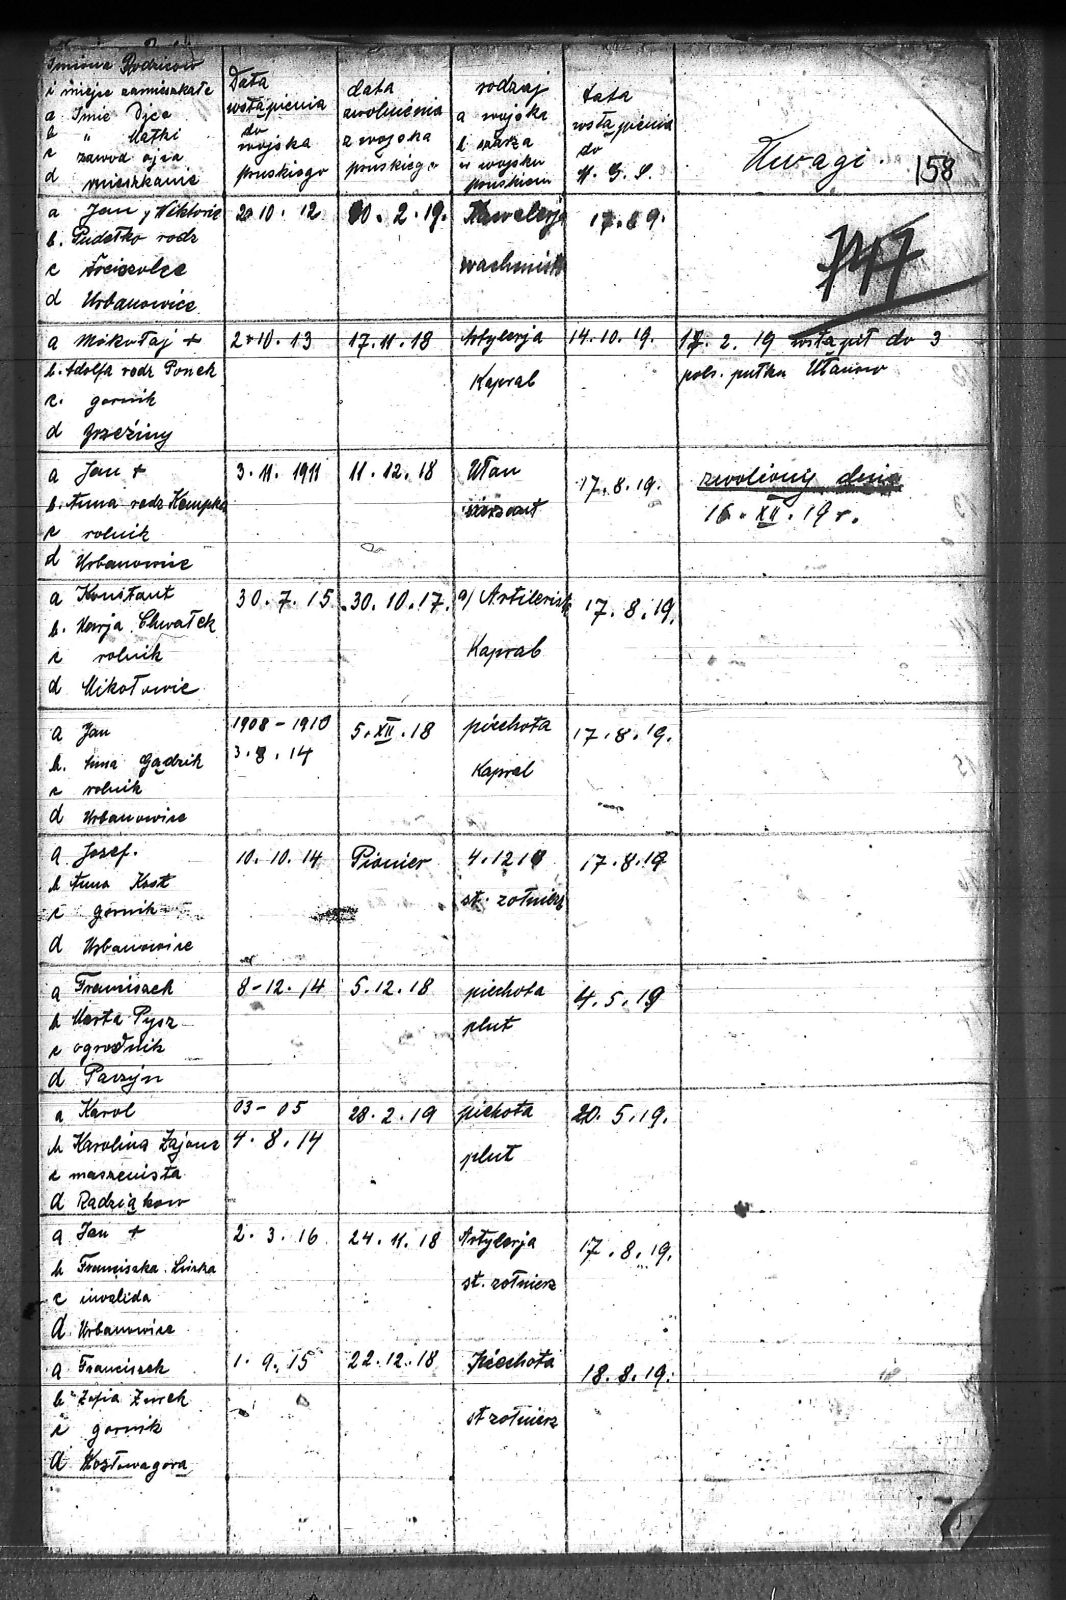 Imiona Rodziców
i miejsc zamieszkałe
a Imie Ojca
b " Matki
c zawód ojca
d mieszkanie
Data
wstąpienia
do
wojska
pruskiego
data
zwolnienia
z wojska
pruskiego
rodzaj
a wojska
b szarża
w wojsku
pruskiem
Data
wstąpienia
do
W. G. S.
Uwagi.
158
747
a Jan, Wiktorie
b. Pudełko rodz
c
d Urbanowice
10. 12
2. 19.
Kawalerja
wachmistr
17. 8 9.
a Mikołaj +
b. Adolfa rodz Ponek
c. gornik
d Brzeziny
10. 13
17. 11. 18
Artylerja
Kapral
14. 10. 19.
2. 19 wstąpił do 3
pols. pułku Ułanow
a Jan +
b. Anna rodz Kempka
c rolnik
d Urbanowice
3. 11. 1911
11. 12. 18
Ułan
17. 8. 19.
zwoliony dnia
16. XII. 19 r.
a Konstant
b. Marja Chwałek
c rolnik
d Mikołowie
30. 7. 15
30. 10. 17.
a) Artilerist
Kapral
17. 8. 19.
a Jan
b. Anna Gądzik
c rolnik
d Urbanowice
1908 - 1910
3. 8. 14
5. XII. 18
piechota
Kapral
17. 8. 19.
a Jozef.
b Anna Kost
c gornik
d Urbanowice
10. 10. 14
Pionier
4. 12 18
st. zołnierz
17. 8. 19
a Franciszek
b Marta Pysz
c ogrodnik
d Parzyn
8 - 12. 14
5. 12. 18
piechota
plut
4. 5. 19
a Karol
b Karolina Zajonc
c maszenista
d Radziąkow
03 - 05
4. 8. 14
28. 2. 19
piechota
plut
20. 5. 19.
a Jan +
b Franciszka Liszka
c inwalida
d Urbanowice
2. 3. 16
24. 11. 18
Artylerja
st. zołnierz
17. 8. 19.
a Franciszek
b Zofia Zurek
c gornik
d Kozłowagora
1. 9. 15
22. 12. 18
Piechota
st zołnierz
18. 8. 19.